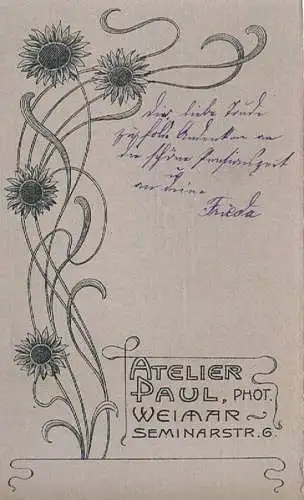 Dir, liebe Trude
zum Andenken an
die schöne Pensionszeit
u.
an deine
Frieda
ATELIER
PAUL, PHOT.
WEIMAR
SEMINARSTR. 6.